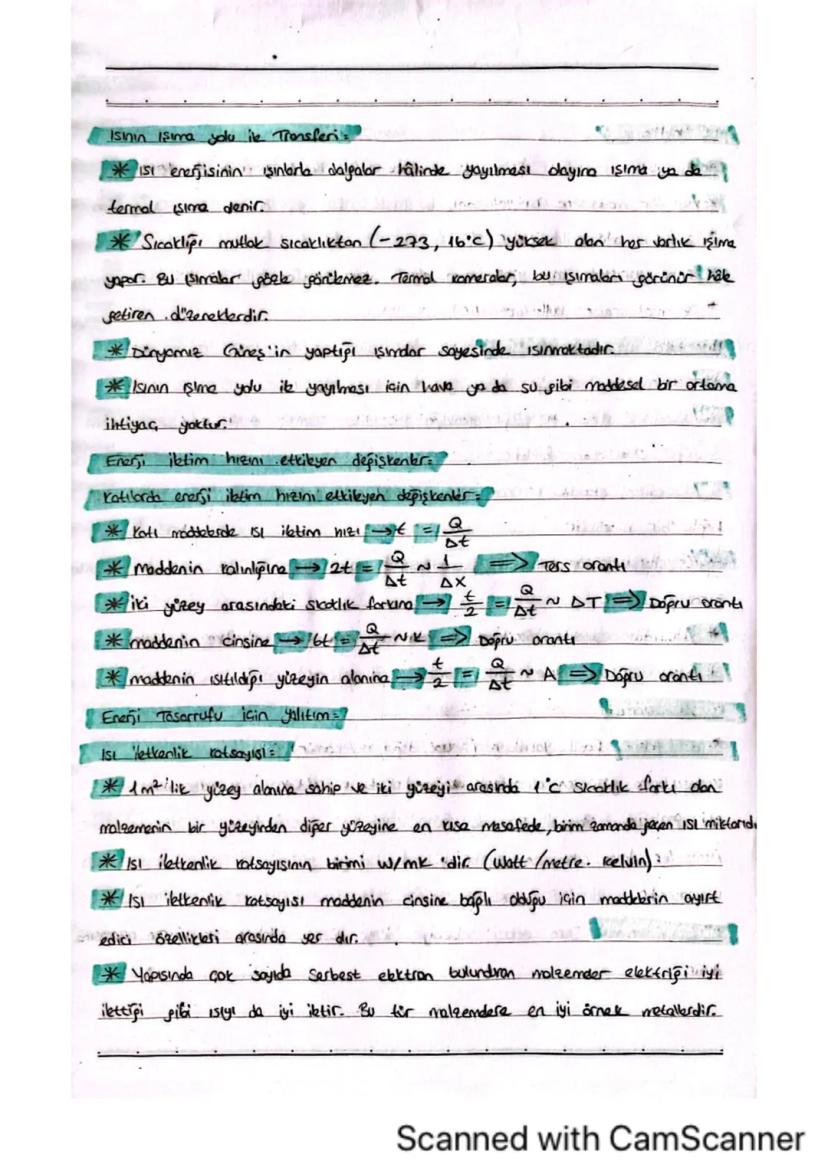 Isının Işıma yolu ile Transferi:
* Isı enerjisinin ışınlarla dalgalar hâlinde yayılması olayına ışıma ya da
termal ışıma denir.
* Sıcaklığı mutlak sıcaklıktan (-273, 16°C) yüksek olan her varlık ışıma
yapar. Bu ışımalar gözle görülmez. Termal kameralar, bu ışımaları görünür hâle
getiren düzeneklerdir.
* Dünyamız Güneş'in yaptığı ışımalar sayesinde ısınmaktadır.
* Isının ışıma yolu ile yayılması için hava ya da su gibi maddesel bir ortama
ihtiyaç yoktur.
Enerji iletim hızını etkileyen değişkenler:
Katılarda enerji iletim hızını etkileyen değişkenler:
* Katı maddelerde ısı iletim hızı → t = Q/Δt
* maddenin kalınlığına → 2t = Q/Δt ~ 1/ΔX ⇒ Ters orantı
* iki yüzey arasındaki sıcaklık farkına → t/2 = Q/Δt ~ ΔT ⇒ Doğru orantı
* maddenin cinsine → 6t = Q/Δt ~ k ⇒ Doğru orantı
* maddenin ısıtıldığı yüzeyin alanına → t/2 = Q/Δt ~ A ⇒ Doğru orantı
Enerji Tasarrufu için Yalıtım:
Isı iletkenlik katsayısı:
* 1m²'lik yüzey alanına sahip ve iki yüzeyi arasında 1°C sıcaklık farkı olan
malzemenin bir yüzeyinden diğer yüzeyine en kısa mesafede, birim zamanda geçen ısı miktarıdı
* Isı iletkenlik katsayısının birimi W/mK 'dir. (Watt/metre. Kelvin)
* Isı iletkenlik katsayısı maddenin cinsine bağlı olduğu için maddelerin ayırt
edici özellikleri arasında yer alır.
* Yapısında çok sayıda serbest elektron bulunduran malzemeler elektriği iyi
ilettiği gibi ısıyı da iyi iletir. Bu tür malzemelere en iyi örnek metallerdir.
Scanned with CamScanner